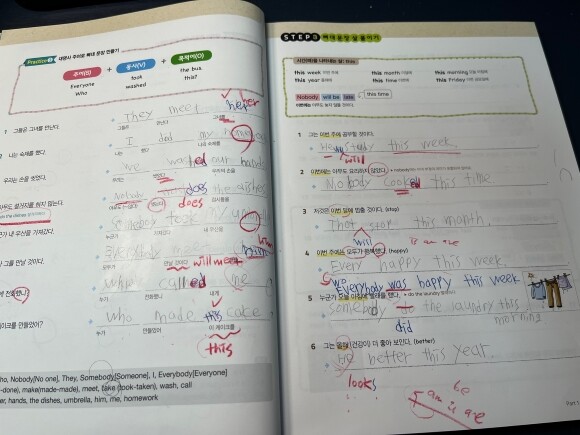 Practice 대명사 주어로 뼈대 문장 만들기
주어(S) + 동사(V) + 목적어(O)
Everyone took the bus.
Who washed this?
1 그들은 그녀를 만난다.
They meet her
그들은 만난다 그녀를
2 나는 숙제를 했다.
I did my homework
나는 했다 나의 숙제를
우리는 손을 씻었다.
we washed our hands
우리는 씻었다 우리의 손을
아무도 설거지를 하지 않는다.
Nobody does the dishes
does
누군가 내 우산을 가져갔다.
Somebody took my umbrella
누군가 가져갔다 내 우산을
모두가 그를 만날 것이다.
Everybody him
모두가 만날 것이다 will meet
who called me
누가 전화했다 내게
케이크를 만들었어?
who made this cake
누가 만들었어 이 케이크를
this
Who, Nobody[No one], They, Somebody[Someone], I, Everybody[Everyone]
-done), make(made-made), meet, take(took-taken), wash, call
her, hands, the dishes, umbrella, him, me, homework
STEP 3 뼈대 문장 살 붙이기
시간(때)를 나타내는 살: this
this week 이번 주에 this month 이달에 this morning 오늘 아침에
this year 올해에 this time 이번에 this Friday 이번 금요일에
Nobody will be late this time
이번에는 아무도 늦지 않을 것이다.
1 그는 이번 주에 공부할 것이다.
He study this week.
will
2 이번에는 아무도 요리하지 않았다.
Nobody cooked this time
3 저것은 이번 달에 멈출 것이다. (stop)
That stop this month
will
is am are
4 이번 주에 모두가 행복했다. (happy)
Every happy this week.
Everybody was happy this week
5 누군가 오늘 아침에 빨래를 했다. • do the laundry
somebody to the laundry this
morning
did
6 그는 올해 (건강이) 더 좋아 보인다. (better)
He better this year.
looks
be
am is are